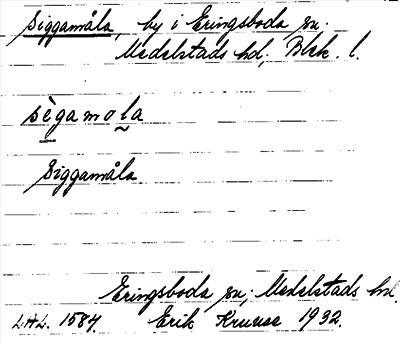 Siggamåla, by i Eringsboda sn.
Medelstads hd, Blek. l.
sègamola
Siggamåla
Eringsboda sn; Medelstads hd.
L.A.L. 1584. Erik Kruuse 1932.